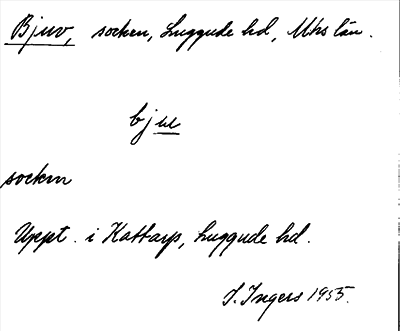 Bjuv, socken, Luggude hd, Mhs län.
bjuu
socken
Uppt. i Kattarp, Luggude hd.
I. Ingers 1955.